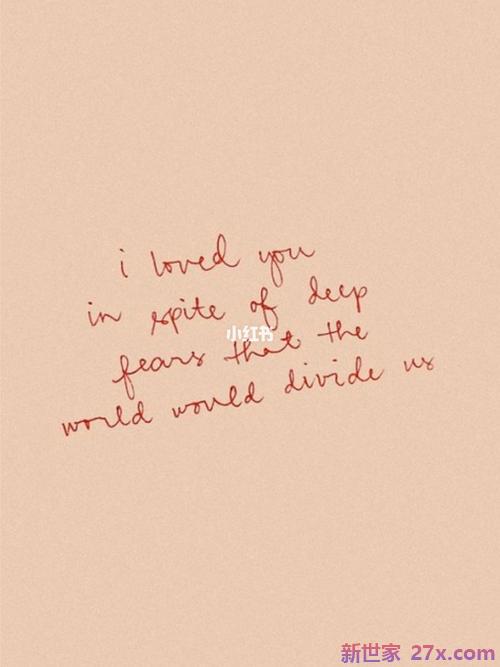 i loved you
in spite of deep
fears that the
world would divide us
小红书
新世家 27x.com